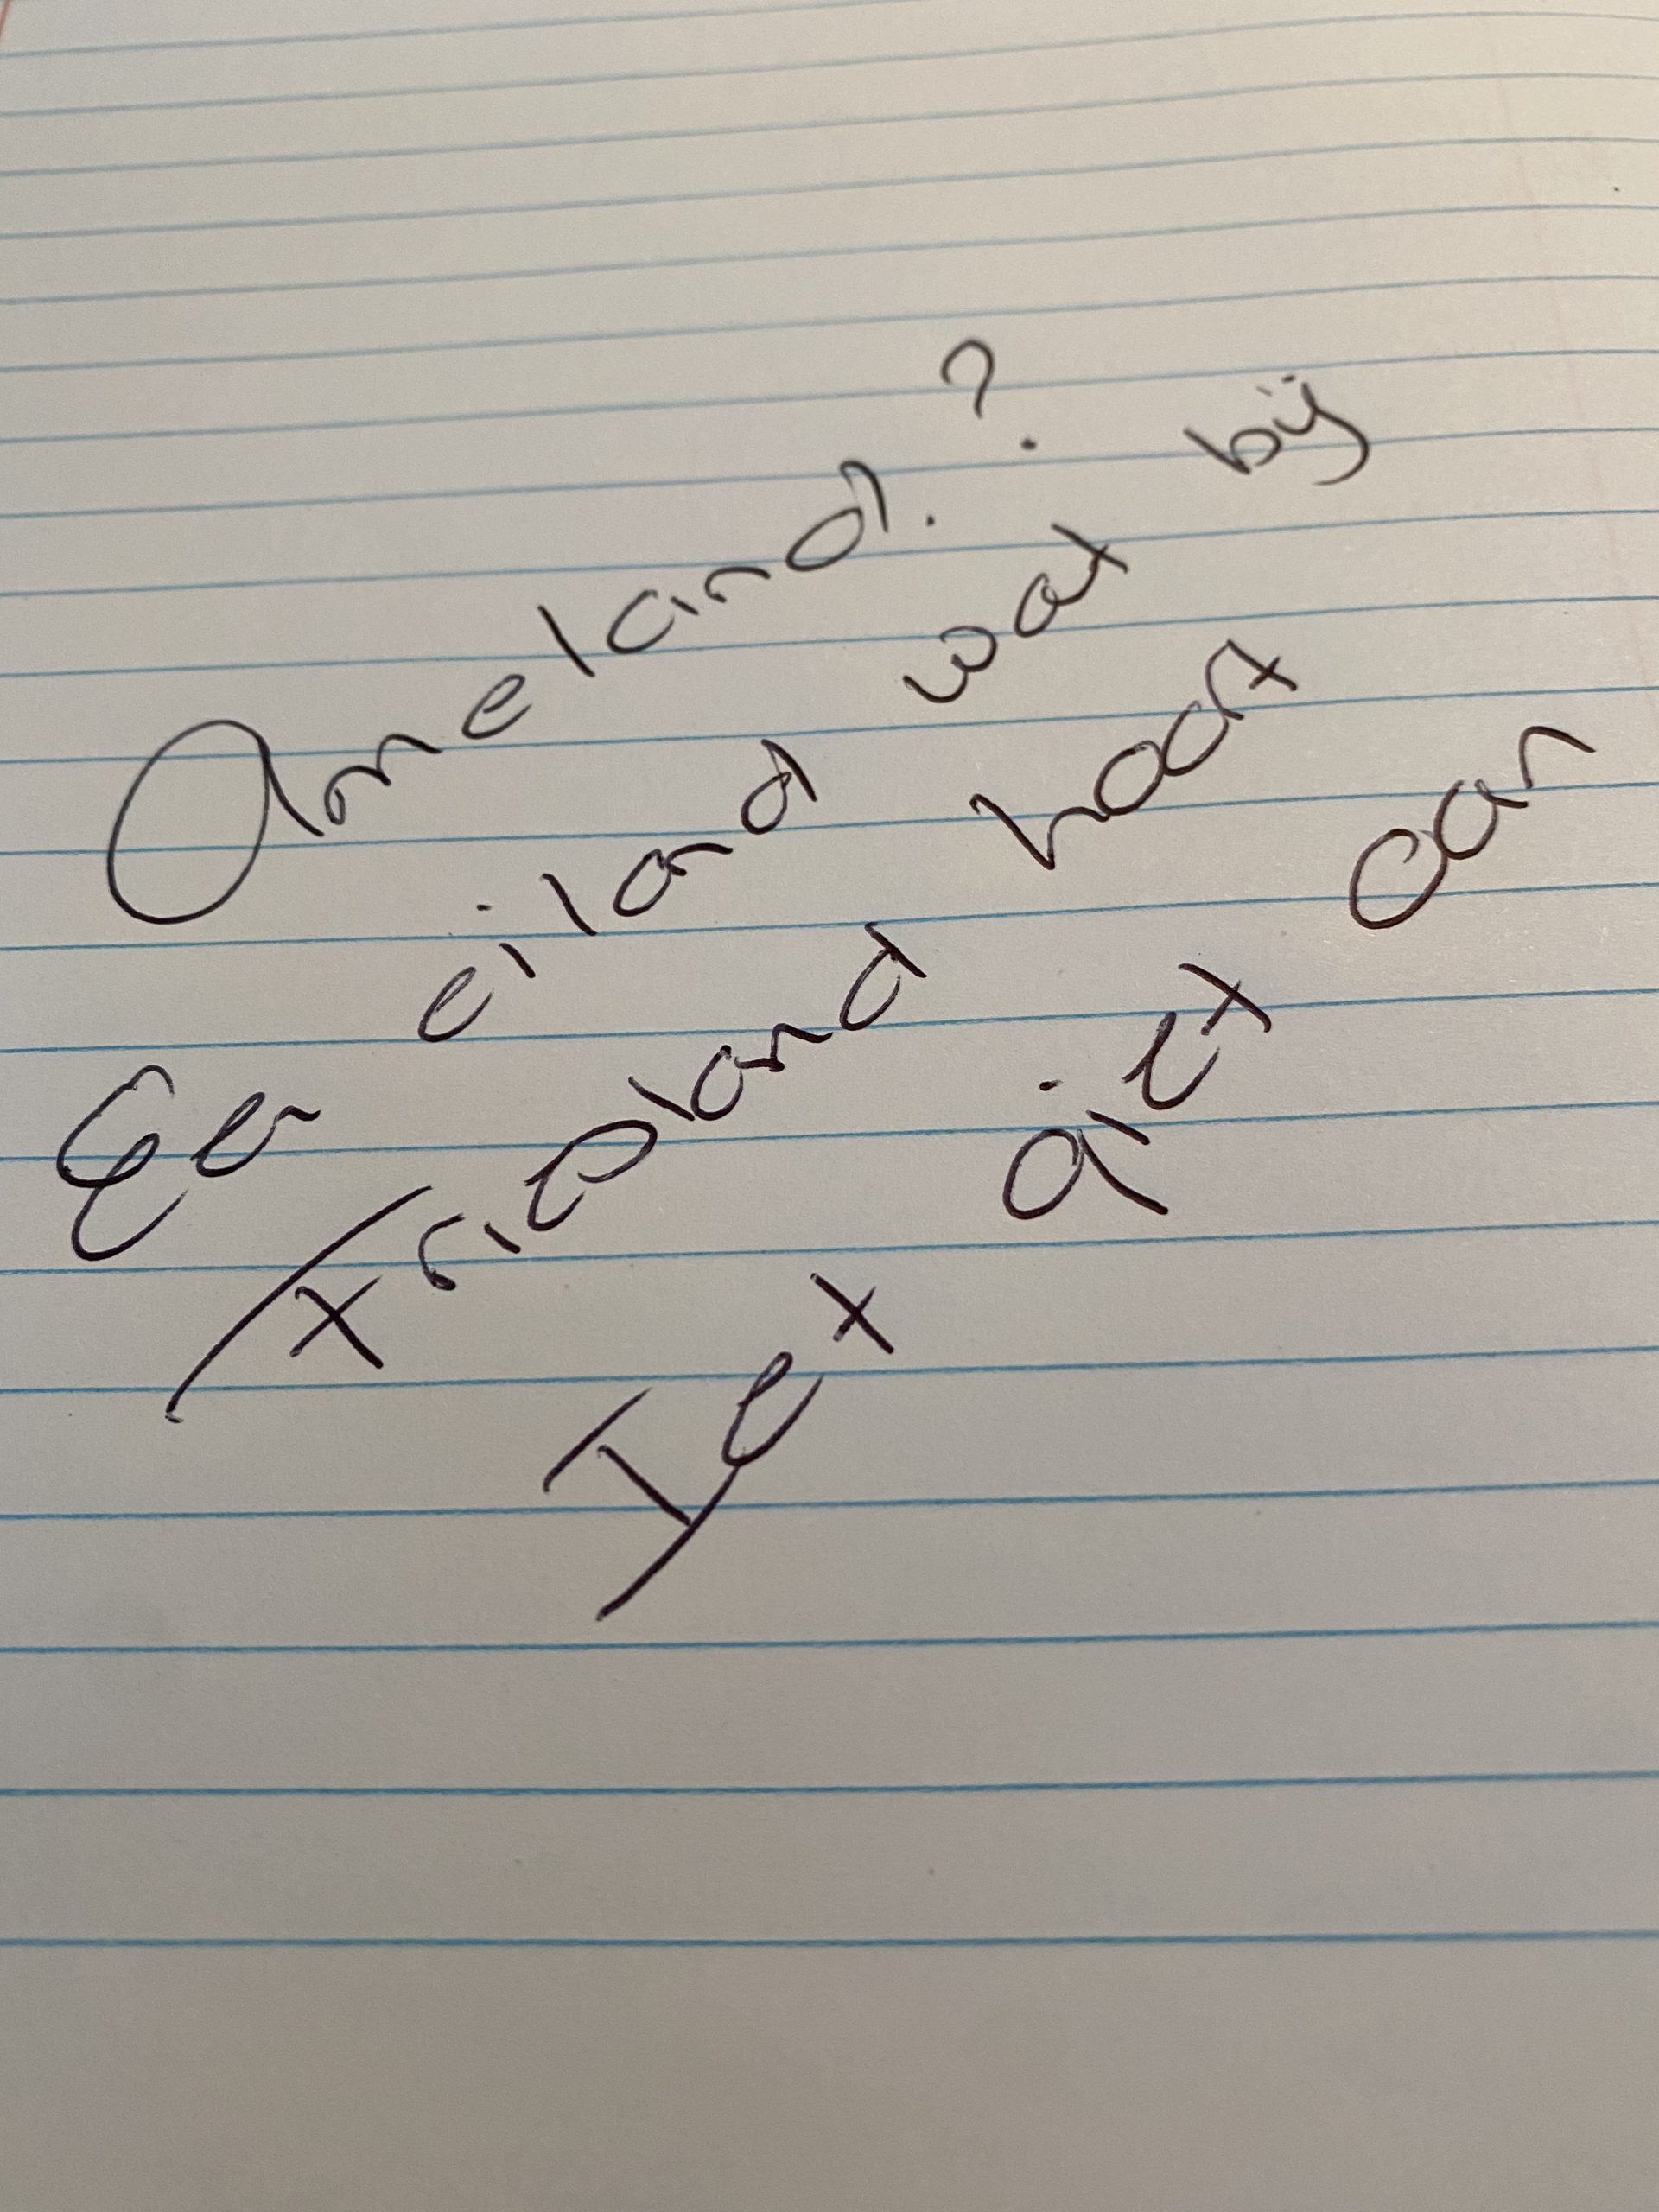 Ameland.?
Een eiland wat bij
Friesland hoort
Iet giet oan